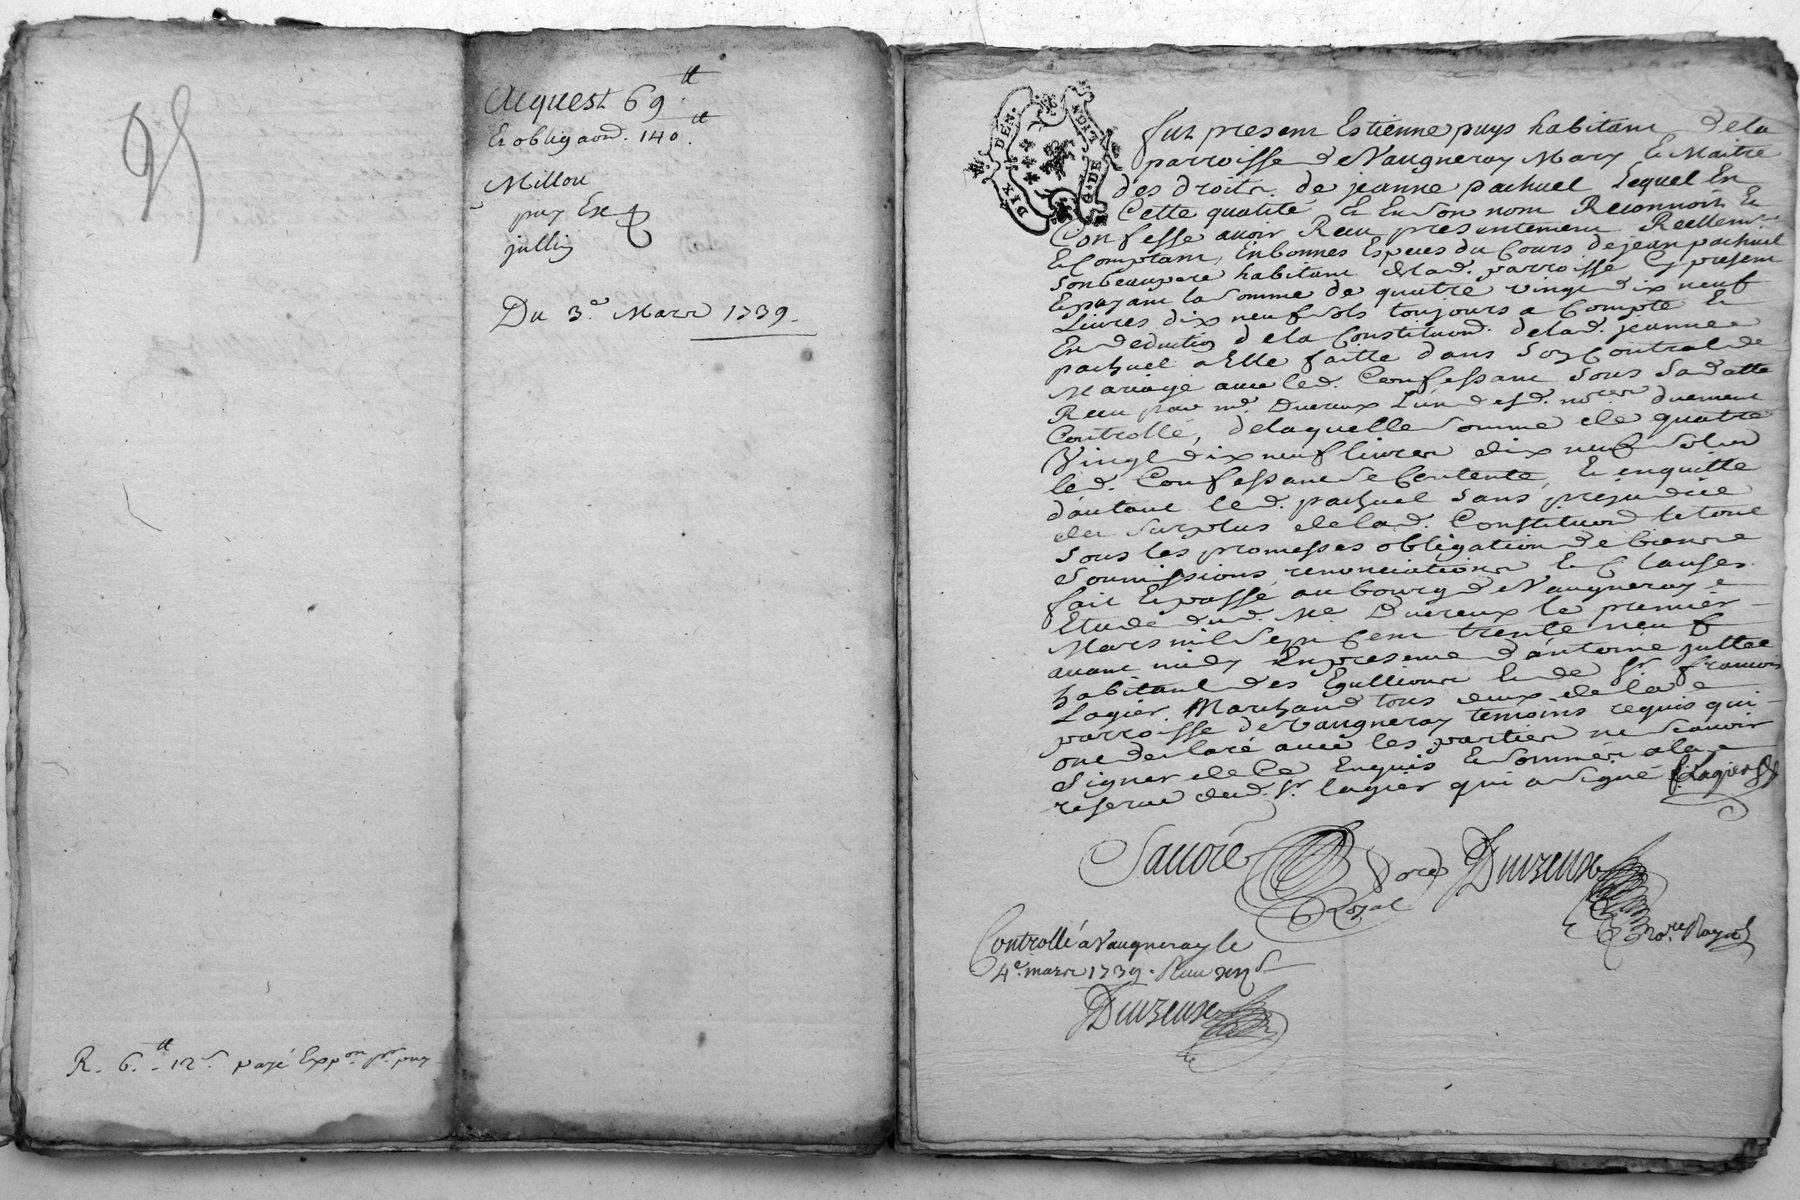 Acquest 69 ₶
Et obligaon̄. 140 ₶.
Millou
puy Ex
jullin
Du 3.e Mars 1739.
R. 6 ₶. 12 s payé Exp.on pr puy
DIX DEN. ADIT. G. DE
fut present Estienne puys habitant dela
parroisse de Vaugneray Mary & Maitre
des droits de jeanne pachuel Lequel En
Cette qualité Et En son nom Reconnoit Et
Confesse avoir Receu presentement Reellemt
& Comptant, En bonnes Especes du Cours de jean pachuel
son beaupere habitant de lad. parroisse Cy present
Et payant la somme de quatre vingt dix neuf
Livres dix neuf sols toujours a Compte Et
En deduction dela Constituon̄. delad. jeanne
pachuel a Elle faitte dans son Contrat de
Mariage avec led. Confessant sous sa datte
Receu par me. Duvreux L'un desd. nores duement
Controllé, de laquelle somme de quatre
Vingt dix neuf livres dix neuf sols
led. Confessant se Contente, Et enquitte
d'autant led. pachuel sans prejudice
du surplus de lad. Constituon̄ le tout
sous les promesses obligation de biens
soumissions renonciations Et Clauses
fait Et passé au bourg de Vaugneray
Etude dud. Me Duvreux le premier
Mars mil sept Cent trente neuf
avant midy En presence d'antoine
habitant des Et de Sr. francois
Lagier Marchand tous deux de la
parroisse de Vaugneray temoins requis qui
ont declaré avec les parties ne scavoir
signer de Ce Enquis Et sommés a la
reserve dud. Sr. lagier qui a signé f. Lagier
Royal
Controllé a Vaugneray le
4.e mars 1739. Receu